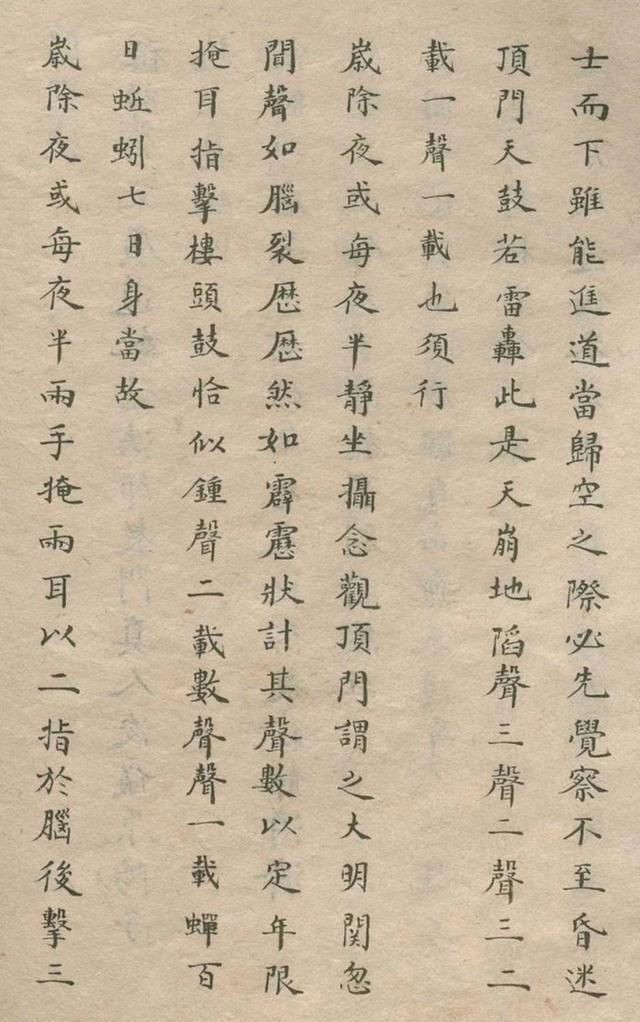 士而下雖能進道當歸空之際必先覺察不至昏迷
頂門天鼓若雷轟此是天崩地陷聲三聲二聲三二
載一聲一載也須行
歲除夜或每夜半靜坐攝念觀頂門謂之大明関忽
間聲如腦裂歷歷然如霹靂狀計其聲數以定年限
掩耳指擊樓頭鼓恰似鍾聲二載數聲聲一載蟬百
日蚯蚓七日身當故
歲除夜或每夜半兩手掩兩耳以二指於腦後擊三